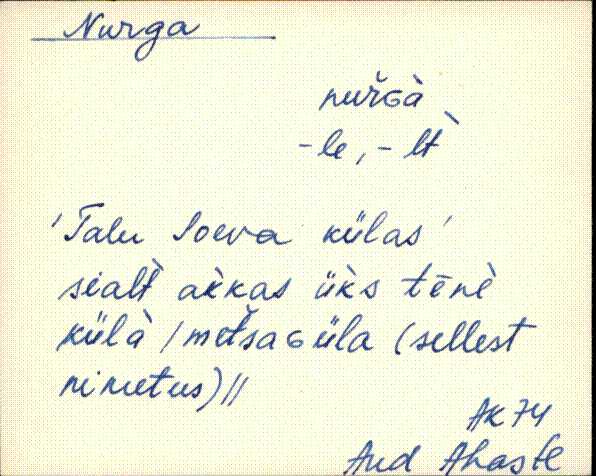 Nurga
nuřGà
-le, -lt̀
'Talu Soeva külas'
sealt̀ ak̀kas ük̀s tēnè
külà / metšaGüla (sellest
nimetus) //
AK74
Aud Ahaste